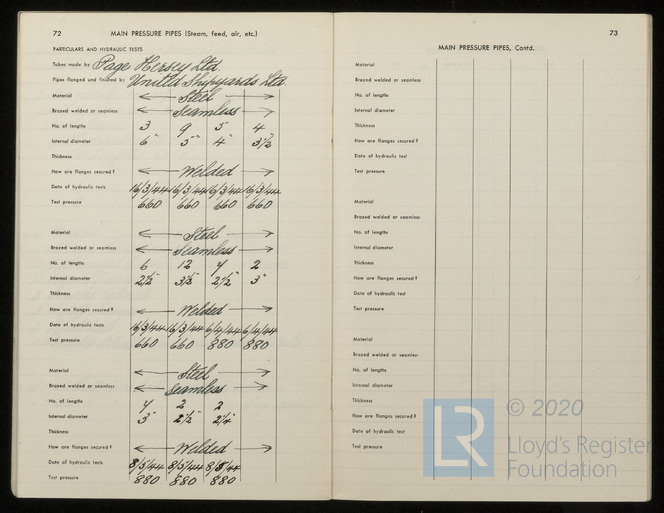 72 MAIN PRESSURE PIPES (Steam, feed, air, etc.)
PARTICULARS AND HYDRAULIC TESTS
Tubes made by Page Hersey Ltd.
Pipes flanged and finished by United Shipyards Ltd.
Material Steel
Brazed welded or seamless Seamless
No. of lengths 3 9 5 4
Internal diameter 6" 5" 4" 3½"
Thickness
How are flanges secured? Welded
Date of hydraulic tests 16/3/44 16/3/44 16/3/44 16/3/44
Test pressure 660 660 660 660
Material Steel
Brazed welded or seamless Seamless
No. of lengths 6 12 4 2
Internal diameter 2½" 3½" 2½" 3"
Thickness
How are flanges secured? Welded
Date of hydraulic tests 16/3/44 16/3/44 6/4/44 6/4/44
Test pressure 660 660 880 880
Material Steel
Brazed welded or seamless Seamless
No. of lengths 4 2 2
Internal diameter 3" 2½"
Thickness
How are flanges secured? Welded
Date of hydraulic tests 8/5/44 8/5/44 8/5/44
Test pressure 880 880 880
73
MAIN PRESSURE PIPES, Contd.
Material
Brazed welded or seamless
No. of lengths
Internal diameter
Thickness
How are flanges secured?
Date of hydraulic test
Test pressure
Material
Brazed welded or seamless
No. of lengths
Internal diameter
Thickness
How are flanges secured?
Date of hydraulic test
Test pressure
Material
Brazed welded or seamless
No. of lengths
Internal diameter
Thickness
How are flanges secured?
Date of hydraulic test
Test pressure
LR © 2020
Lloyd's Register
Foundation